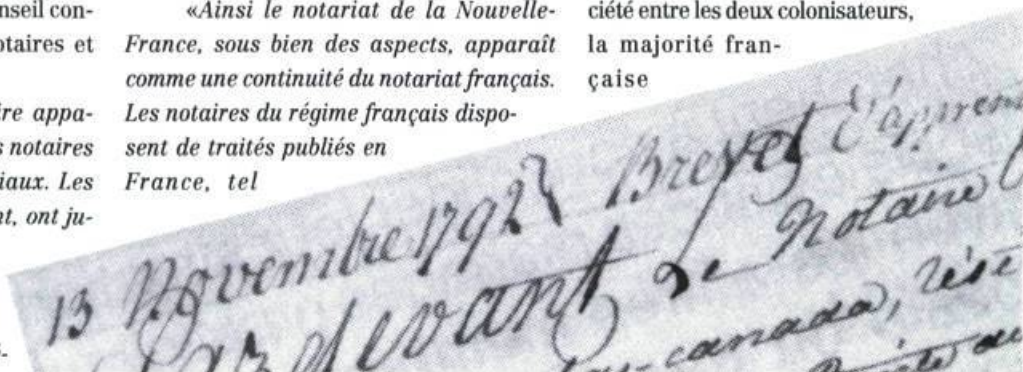 nseil con-
otaires et
ire appa-
s notaires
iaux. Les
nt, ont ju-
«Ainsi le notariat de la Nouvelle-
France, sous bien des aspects, apparaît
comme une continuité du notariat français.
Les notaires du régime français dispo-
sent de traités publiés en
France, tel
ciété entre les deux colonisateurs,
la majorité fran-
çaise
13 Novembre 1792 } Brevet d'apprent
devant
de Notaire
canada, rési